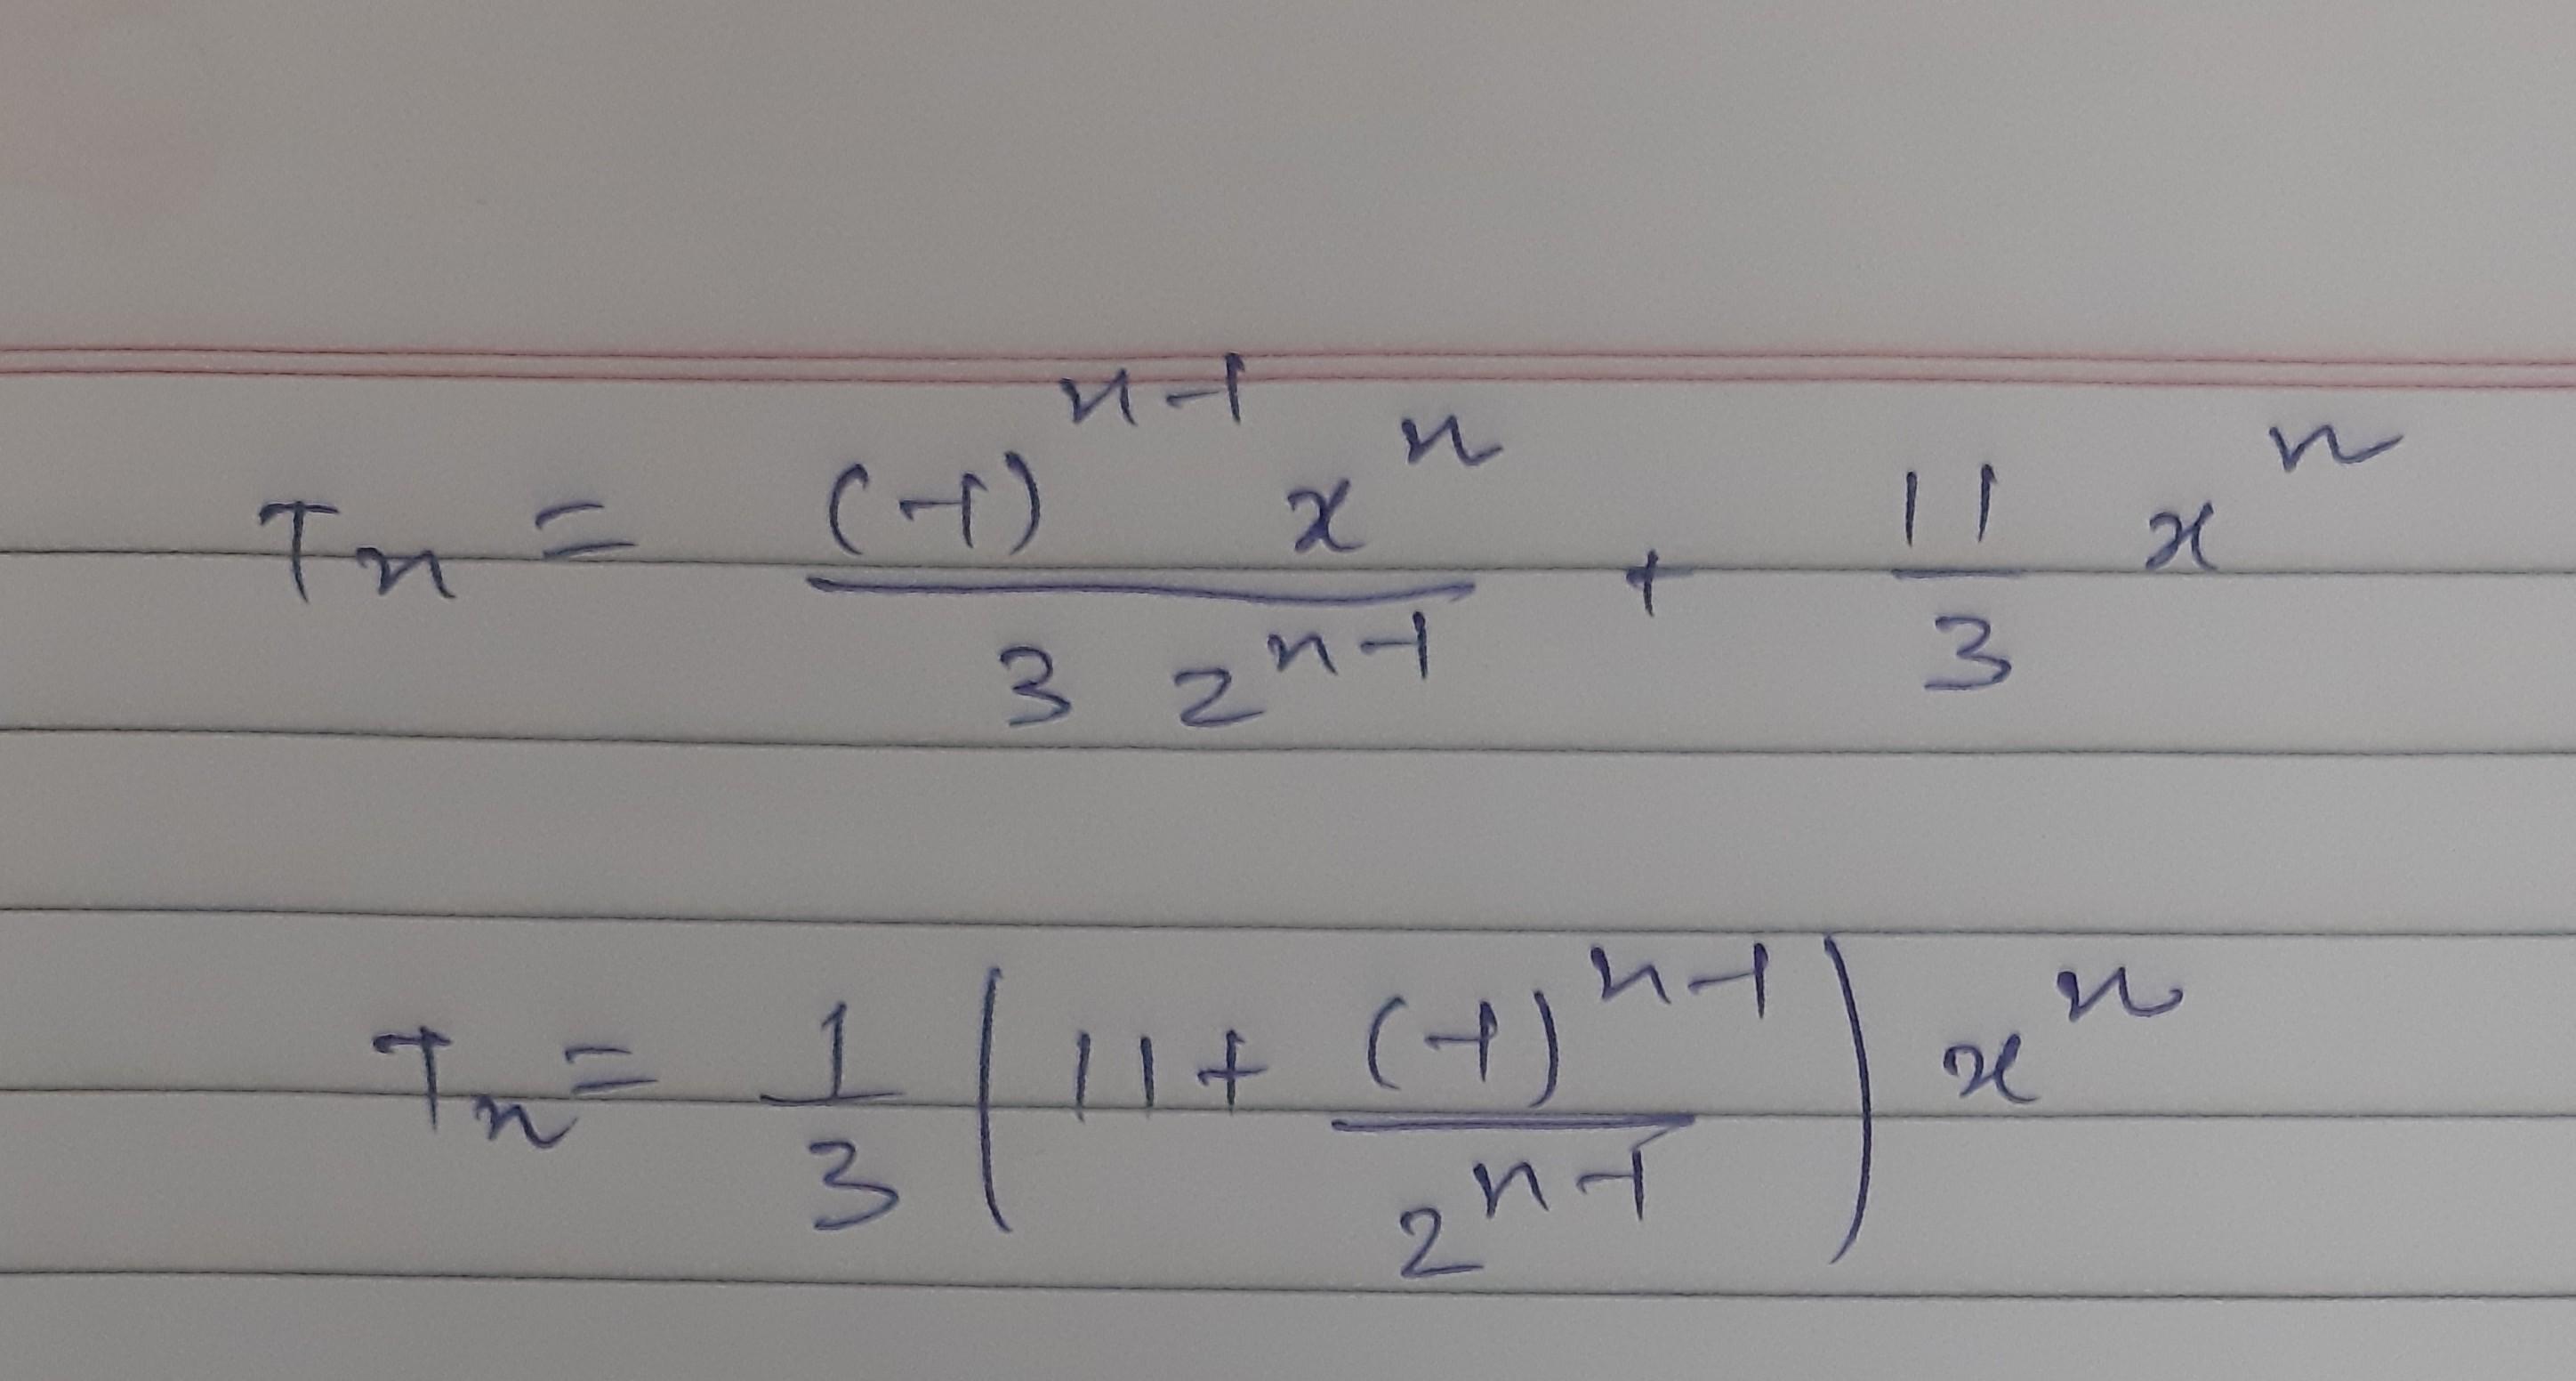 Tₙ = (-1)^(n-1) x^n / (3 2^(n-1)) + 11/3 x^n
Tₙ = 1/3 (11 + (-1)^(n-1) / 2^(n-1)) x^n